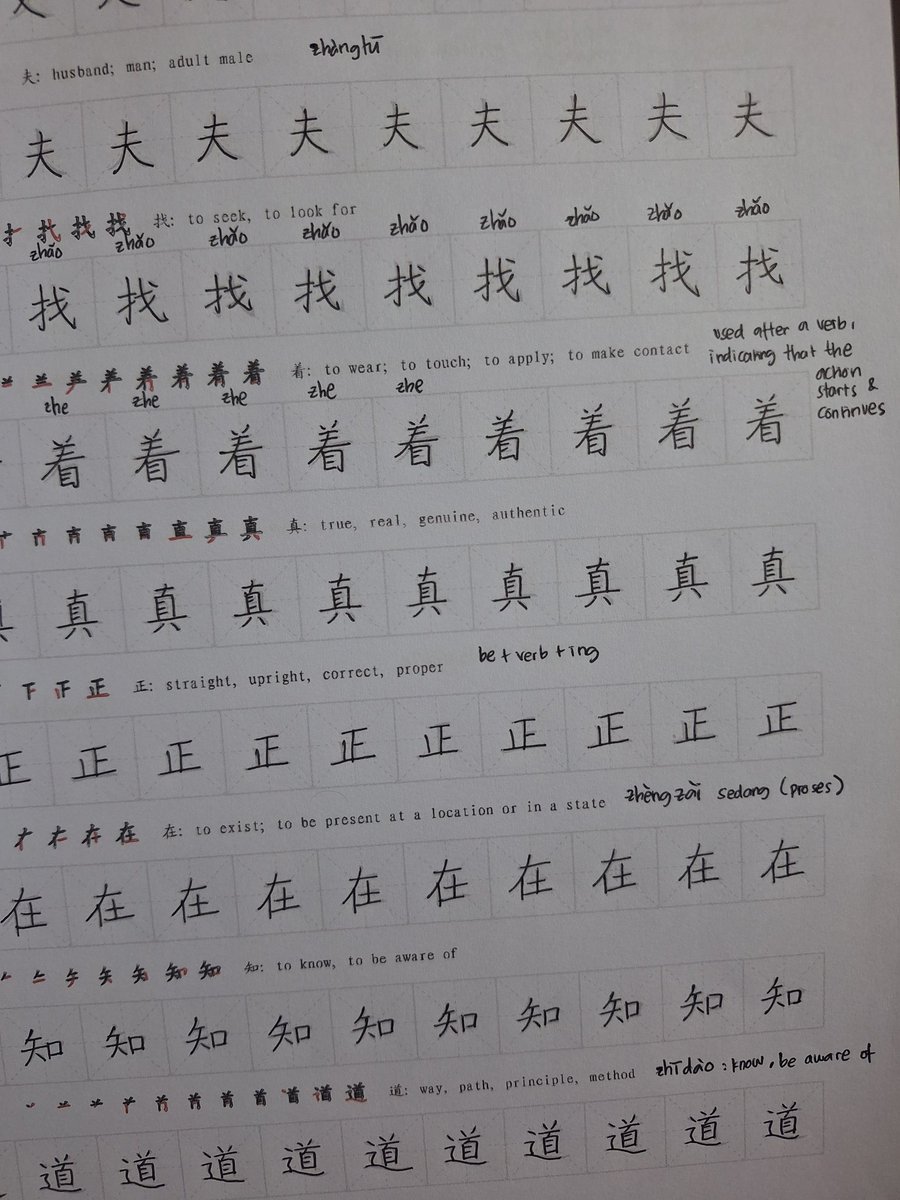 夫: husband; man; adult male zhàngfū
夫 夫 夫 夫 夫 夫 夫 夫 夫
找: to seek, to look for
zhǎo zhǎo zhǎo zhǎo zhǎo zhǎo zhǎo zhǎo zhǎo
找 找 找 找 找 找 找 找 找
着: to wear; to touch; to apply; to make contact
used after a verb,
indicating that the
action
starts &
continues
zhe zhe zhe zhe zhe
着 着 着 着 着 着 着 着 着
真 真: true, real, genuine, authentic
真 真 真 真 真 真 真 真 真
正 正: straight, upright, correct, proper be + verb + ing
正 正 正 正 正 正 正 正 正 正
在 在: to exist; to be present at a location or in a state zhèngzài sedang (proses)
在 在 在 在 在 在 在 在 在 在
知 知: to know, to be aware of
知 知 知 知 知 知 知 知 知 知
道 道: way, path, principle, method zhīdào : know, be aware of
道 道 道 道 道 道 道 道 道 道